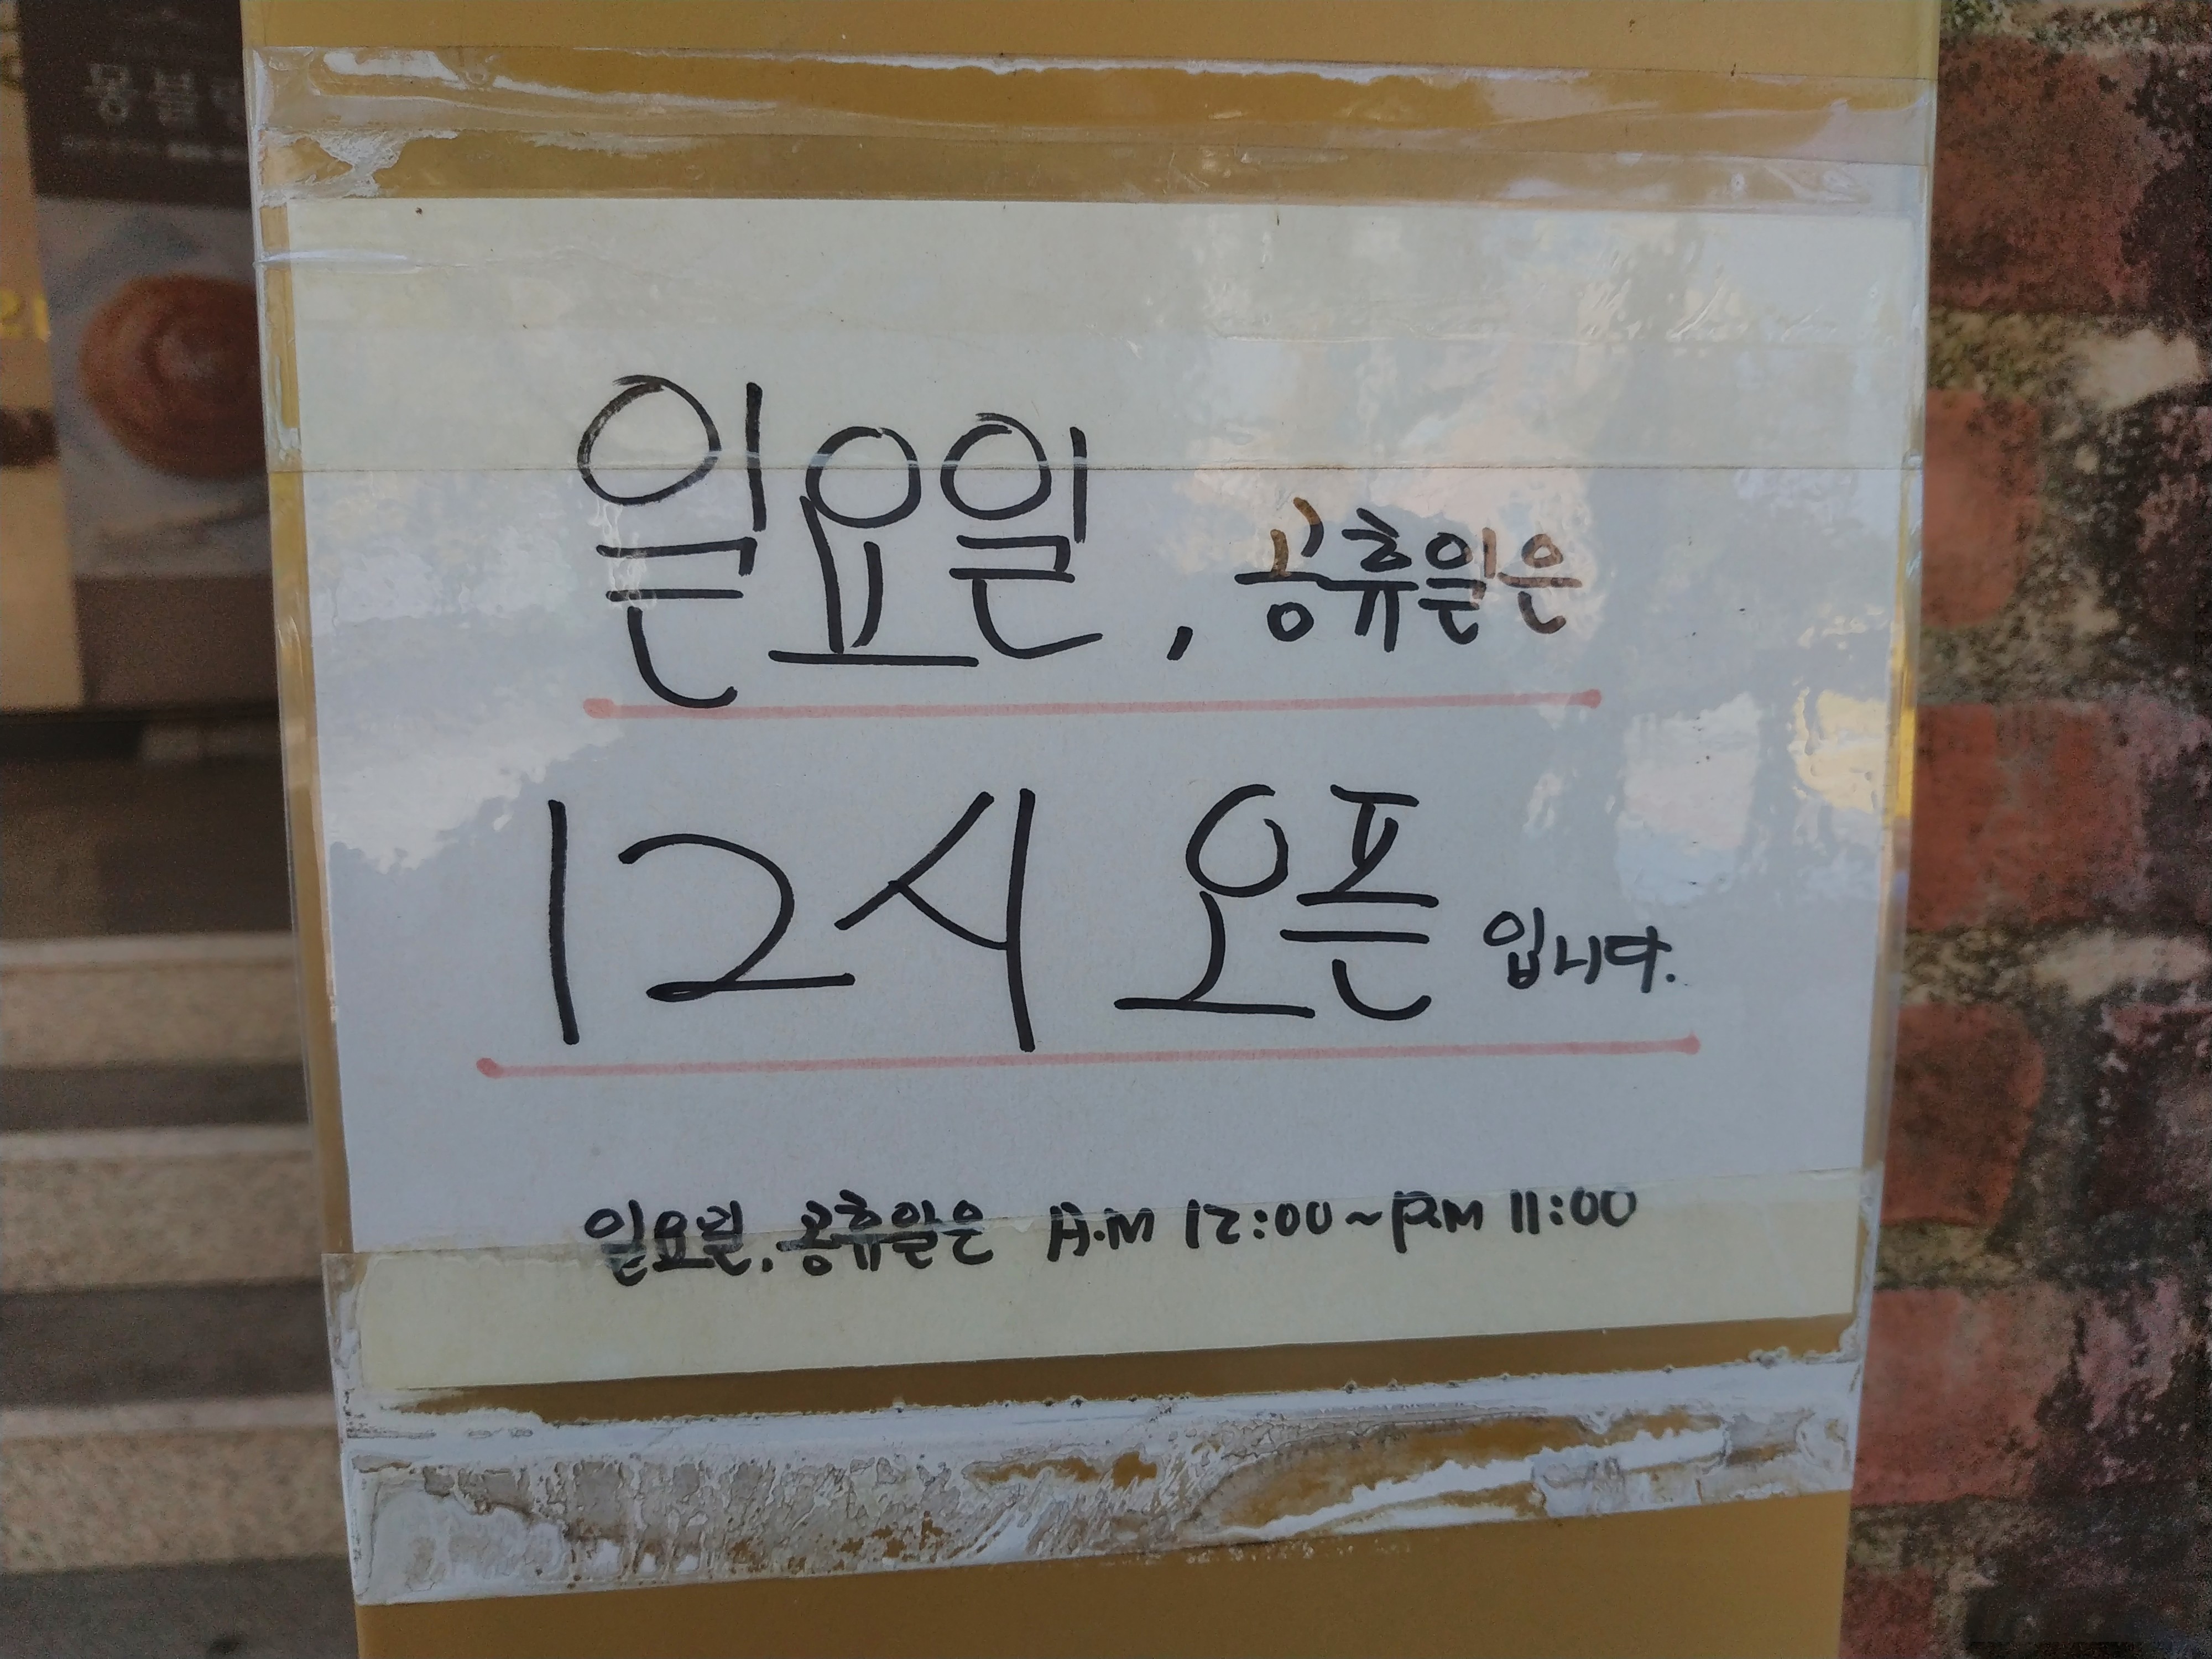 몽블랑
일요일, 공휴일은
12시 오픈 입니다.
일요일, 공휴일은 A.M 12:00~P.M 11:00